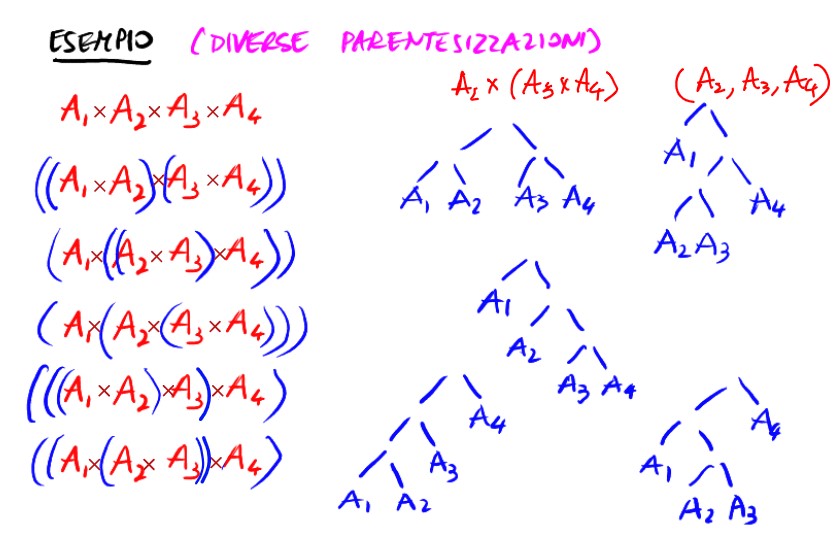 ESEMPIO (DIVERSE PARENTESIZZAZIONI)
A₁×A₂×A₃×A₄
((A₁×A₂)×(A₃×A₄))
(A₁×((A₂×A₃)×A₄))
(A₁×(A₂×(A₃×A₄)))
(((A₁×A₂)×A₃)×A₄)
((A₁×(A₂×A₃))×A₄)
A₂×(A₃×A₄)
A₁ A₂ A₃ A₄
(A₂,A₃,A₄)
A₁
A₄
A₂ A₃
A₁
A₂
A₃ A₄
A₄
A₃
A₁ A₂
A₄
A₁
A₂ A₃